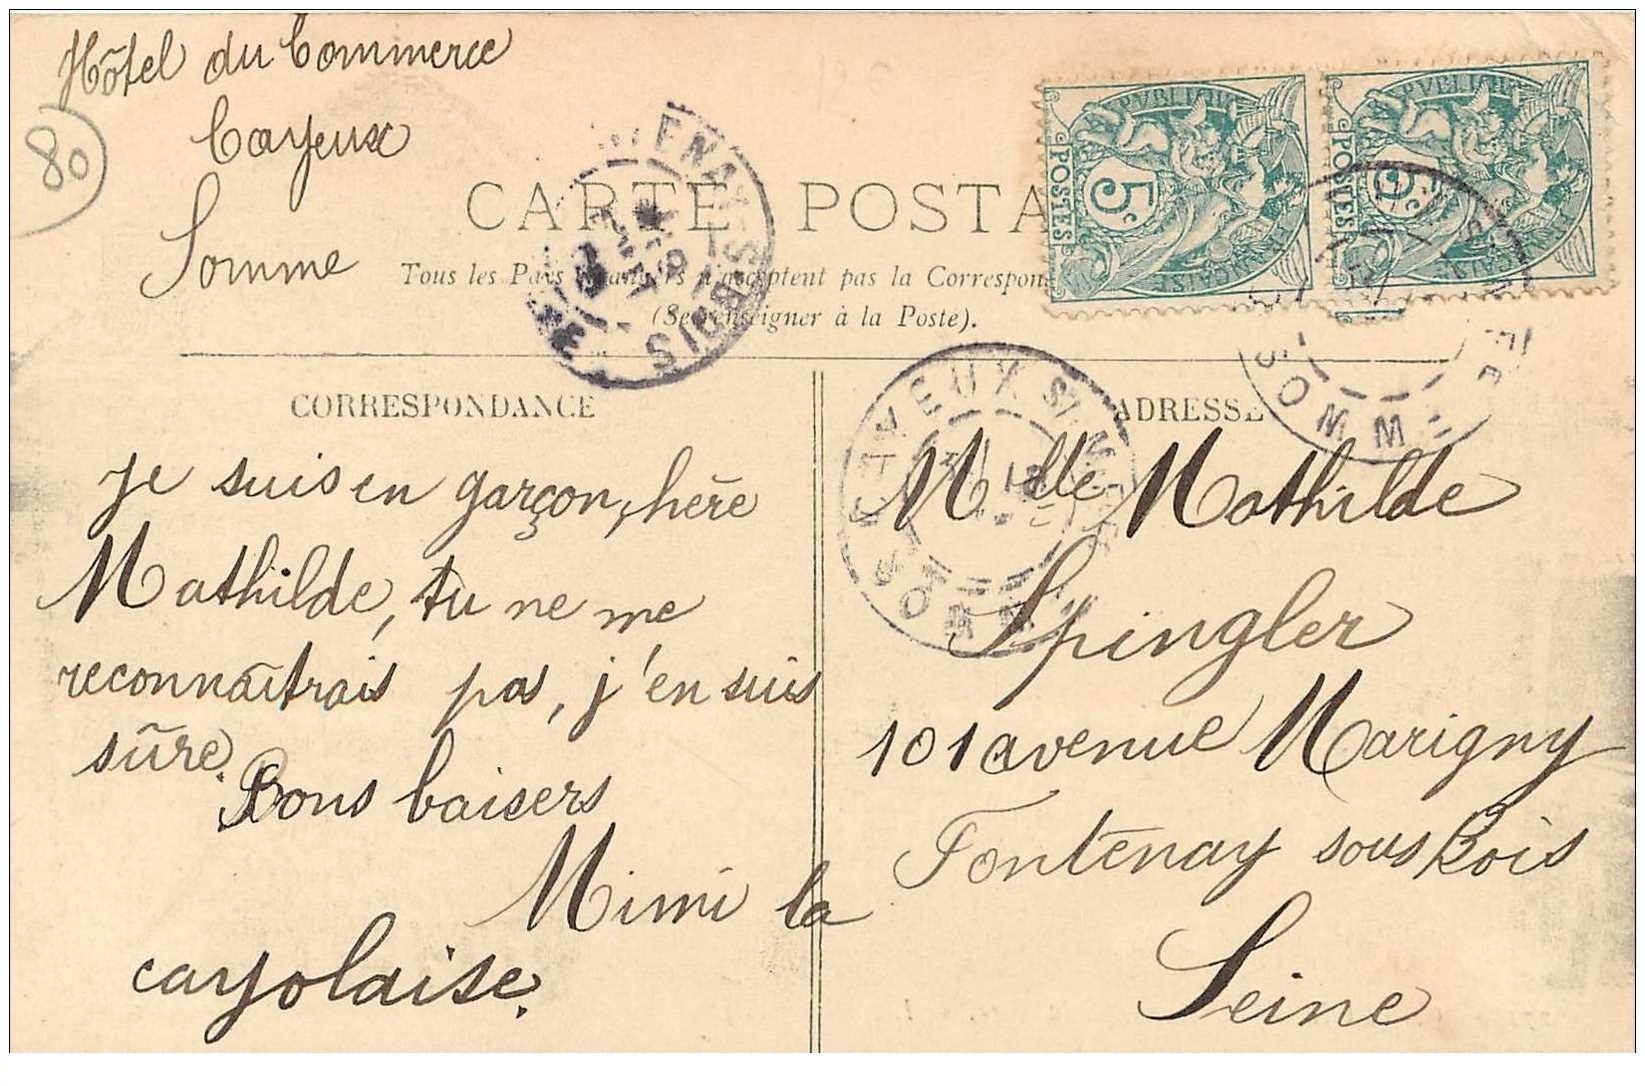 Hôtel du Commerce
Cayeux
Somme
80
CARTE POSTA
Tous les Pays étrangers n'acceptent pas la Correspon
(Se renseigner à la Poste).
RÉPUBLIQUE
FRANÇAISE
POSTES
5c
POSTES
5c
FONTENAY-S-BOIS
CAYEUX S/MER
SOMME
SOMME
CORRESPONDANCE
je suis en garçon, hère
Mathilde, tu ne me
reconnaîtrais pas, j'en suis
sûre.
Bons baisers
Mimi la
cayolaise.
ADRESSE
Mlle Mathilde
Spingler
101 avenue Marigny
Fontenay sous Bois
Seine